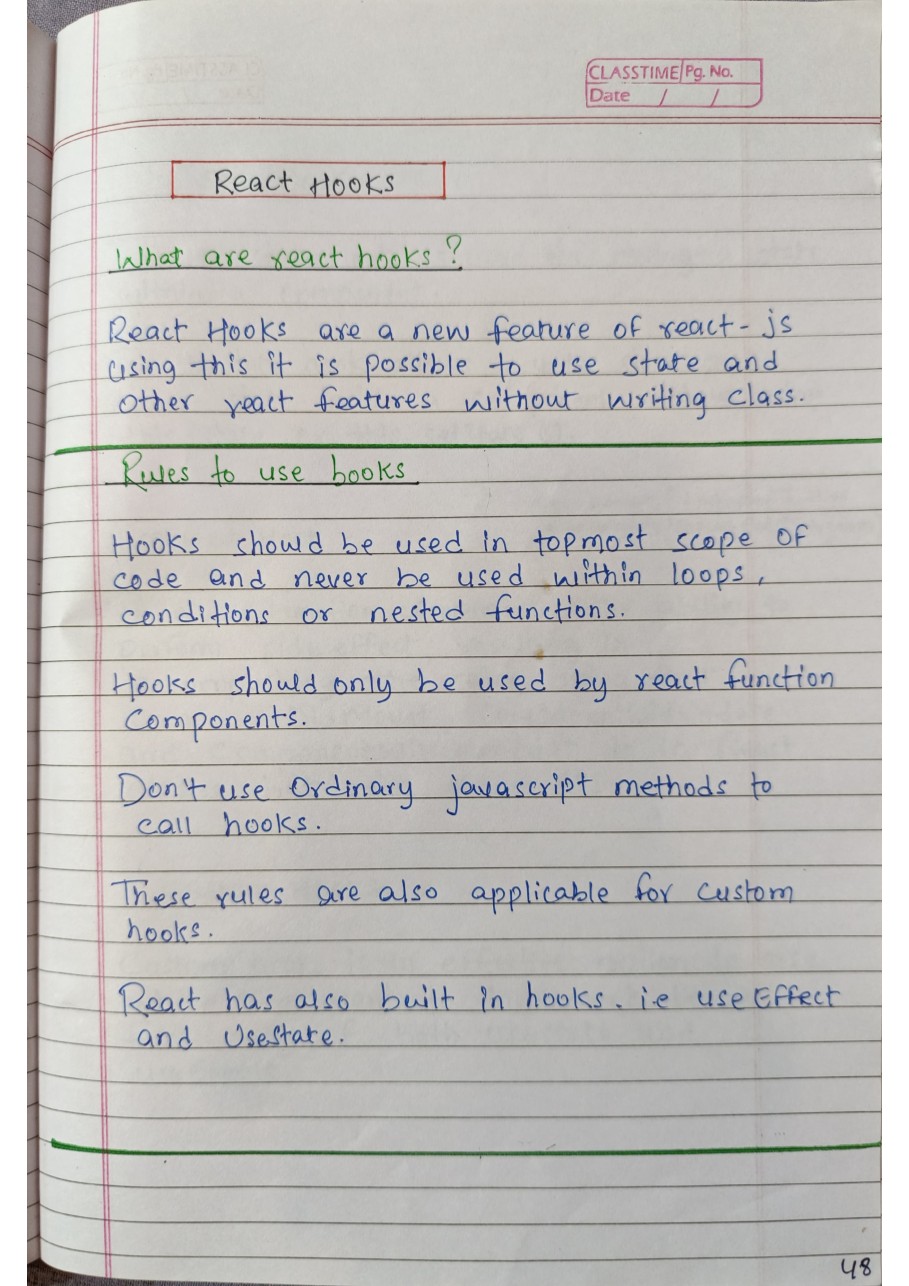 CLASSTIME Pg. No.
Date / /
React Hooks
What are react hooks ?
React Hooks are a new feature of react-js
using this it is possible to use state and
other react features without writing class.
Rules to use hooks
Hooks should be used in topmost scope of
code and never be used within loops,
conditions or nested functions.
Hooks should only be used by react function
Components.
Don't use Ordinary javascript methods to
call hooks.
These rules are also applicable for custom
hooks.
React has also built in hooks. i.e useEffect
and Usestate.
48